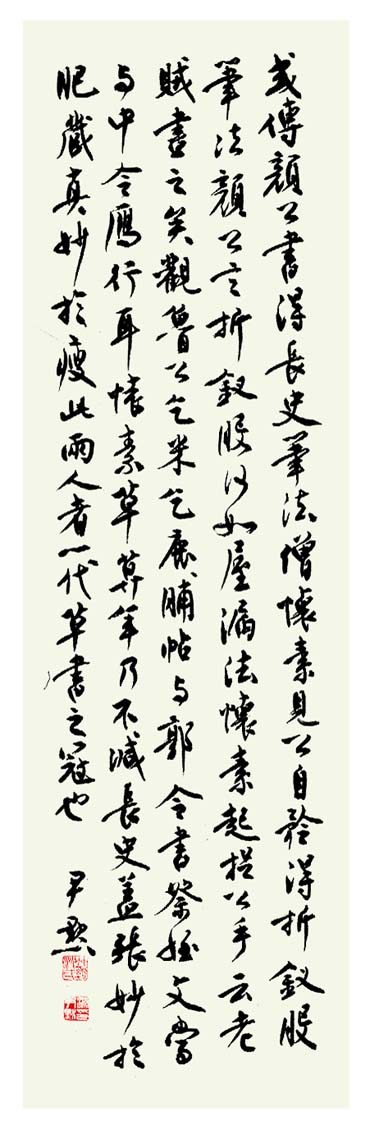 或傳顔公書得長史筆法僧懷素見公自矜得折釵股
筆法顔公言折釵股何如屋漏法懷素起捉公手云老
賊盡之矣觀魯公乞米乞鹿脯帖与郭令書祭姪文當
与中令鴈行耳懷素草暮年乃不減長史蓋張妙於
肥藏真妙於瘦此兩人者一代草書之冠也
尹默